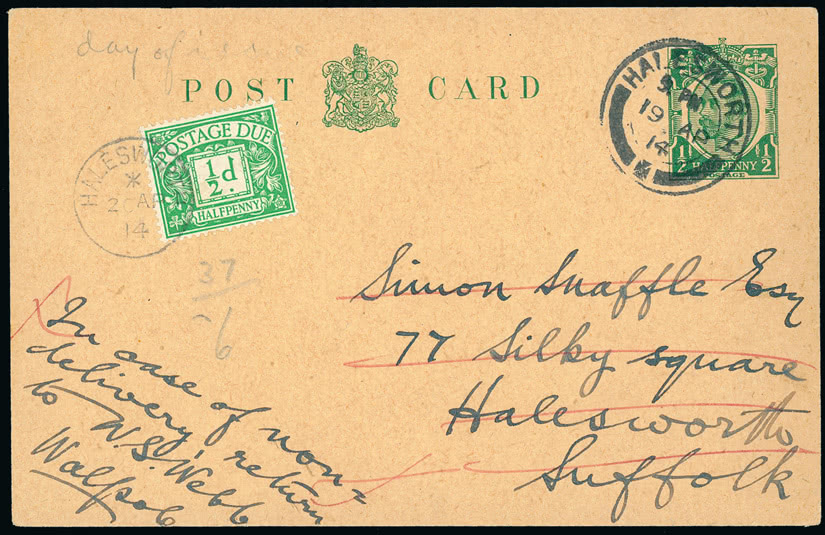 day of
POST CARD
HALESWORTH
9 PM
19 AP
14
1/2 HALFPENNY 1/2
POSTAGE
POSTAGE DUE
1/2 d.
HALFPENNY
HALESW
AP
14
37
-6
Simon Snaffle Esq
77 Silky square
Halesworth
Suffolk
In case of non=
delivery, return
to W.S. Webb
Walpole